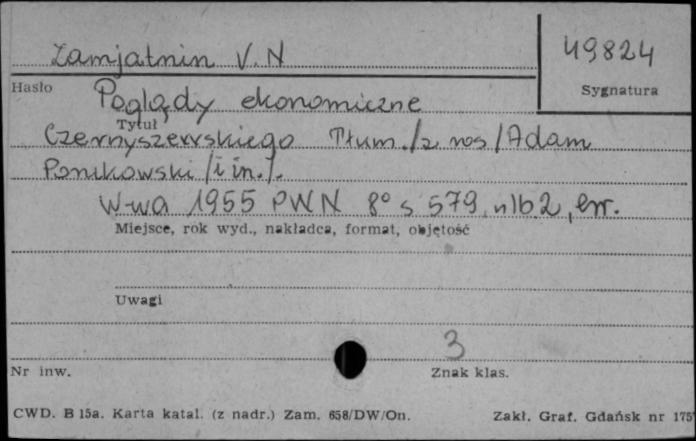 Zamjatnin V. N
49824
Hasło
Sygnatura
Poglądy ekonomiczne
Tytuł
Czernyszewskiego Tłum./z ros/Adam
Ponikowski /i in./.
W-wa 1955 PWN 8° s 579, nlb 2, err.
Miejsce, rok wyd., nakładca, format, objętość
Uwagi
3
Nr inw.
Znak klas.
CWD. B 15a. Karta katal. (z nadr.) Zam. 658/DW/On.
Zakł. Graf. Gdańsk nr 175